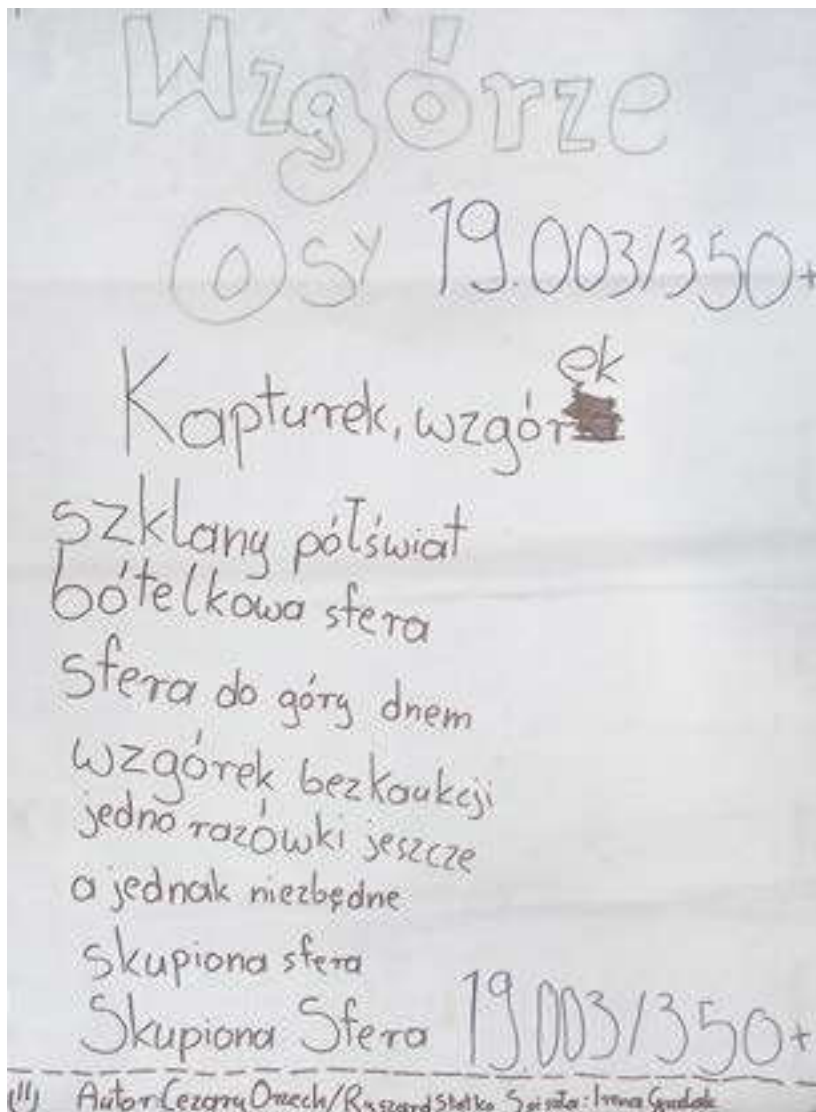 Wzgórze
Osy 19.003/350+
Kapturek, wzgórek
szklany półświat
bótelkowa sfera
sfera do góry dnem
wzgórek bezkaukcji
jedno razówki jeszcze
a jednak niezbędne
skupiona sfera
Skupiona Sfera 19.003/350+
Autor: Cezary Orzech/Ryszard Spisała: Irena